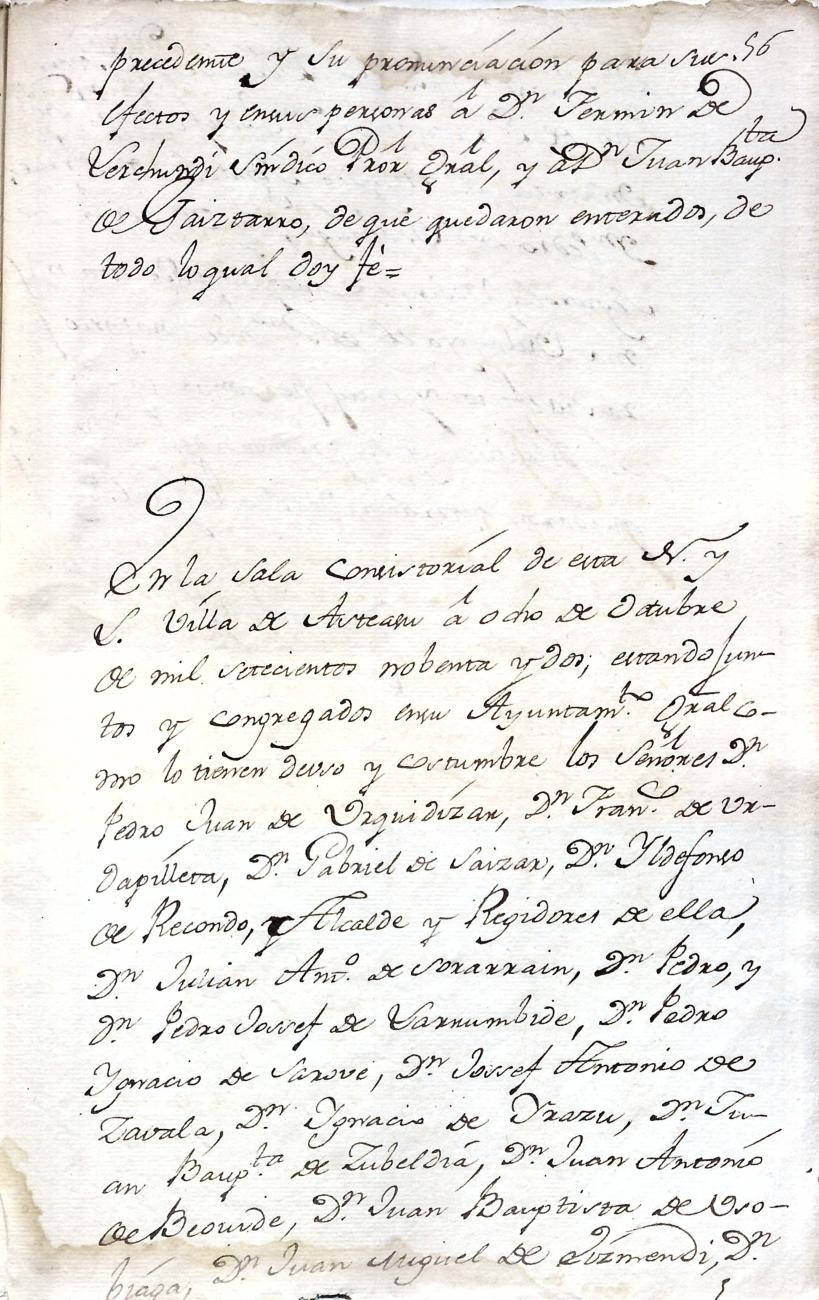 56
precedente y su pronunciacion para sus
efectos y ensus personas â Dn. Fermin de
Verchundi Sindico Pror. Gral, y â Dn Juan Baupta.
de Saiztarro, de que quedaron enterados, de
todo loqual doy fé=
En la Sala Consistorial de esta N. y
L. Villa de Asteasu â ocho de Octubre
de mil setecientos nobenta y dos; estando Jun-
tos y congregados ensu Ayuntamto. Gral co-
mo lo tienen deuso y costumbre los Señores Dn
Pedro Juan de Urquidizar, Dn Franco. de Ur-
dapilleta, Dn Gabriel de Saizar, Dn Yldefonso
de Recondo, y Alcalde y Regidores de ella,
Dn Julian Anto. de Sorarrain, Dn Pedro, y
Dn Pedro Jossef de Larrumbide, Dn Pedro
Ygnacio de Sarove, Dn Jossef Antonio de
Zavala, Dn Ygnacio de Yrazu, Dn Ju-
an Baupta. de Zubeldia, Dn Juan Antonio
de Beovide, Dn Juan Bauptista de Uso-
biaga, Dn Juan Miguel de Lizmendi, Dn